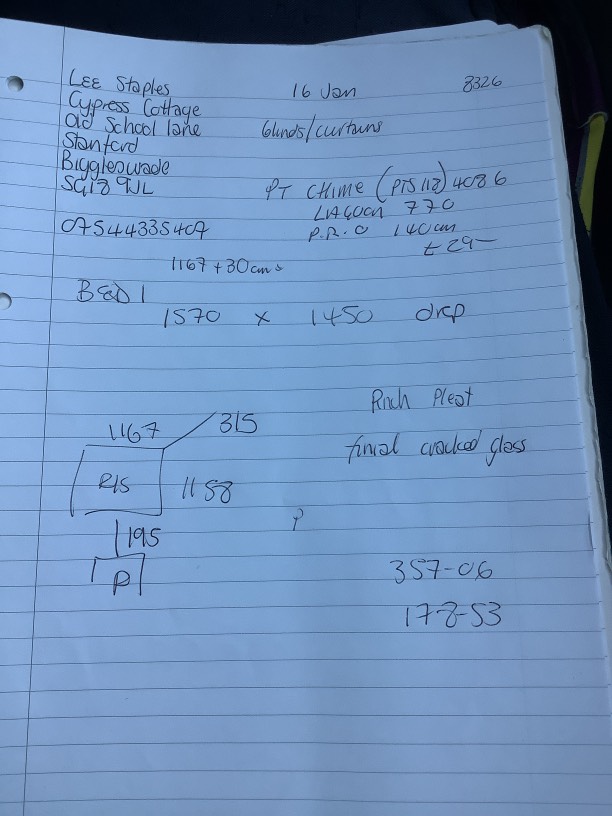 LEE Staples 16 Jan 3326
Cypress Cottage
Old School lane blinds/curtains
Stanford
Biggleswade
SG18 9JL PT CHIME (PTS 112) 4086
LAGOON 770
07544335407 P.R.O 140cm
£29-
1167 + 30cms
BED 1
1570 x 1450 drop
Pinch Pleat
1167 315
finial cracked glass
R/S 1158
195
P
357-06
178-53